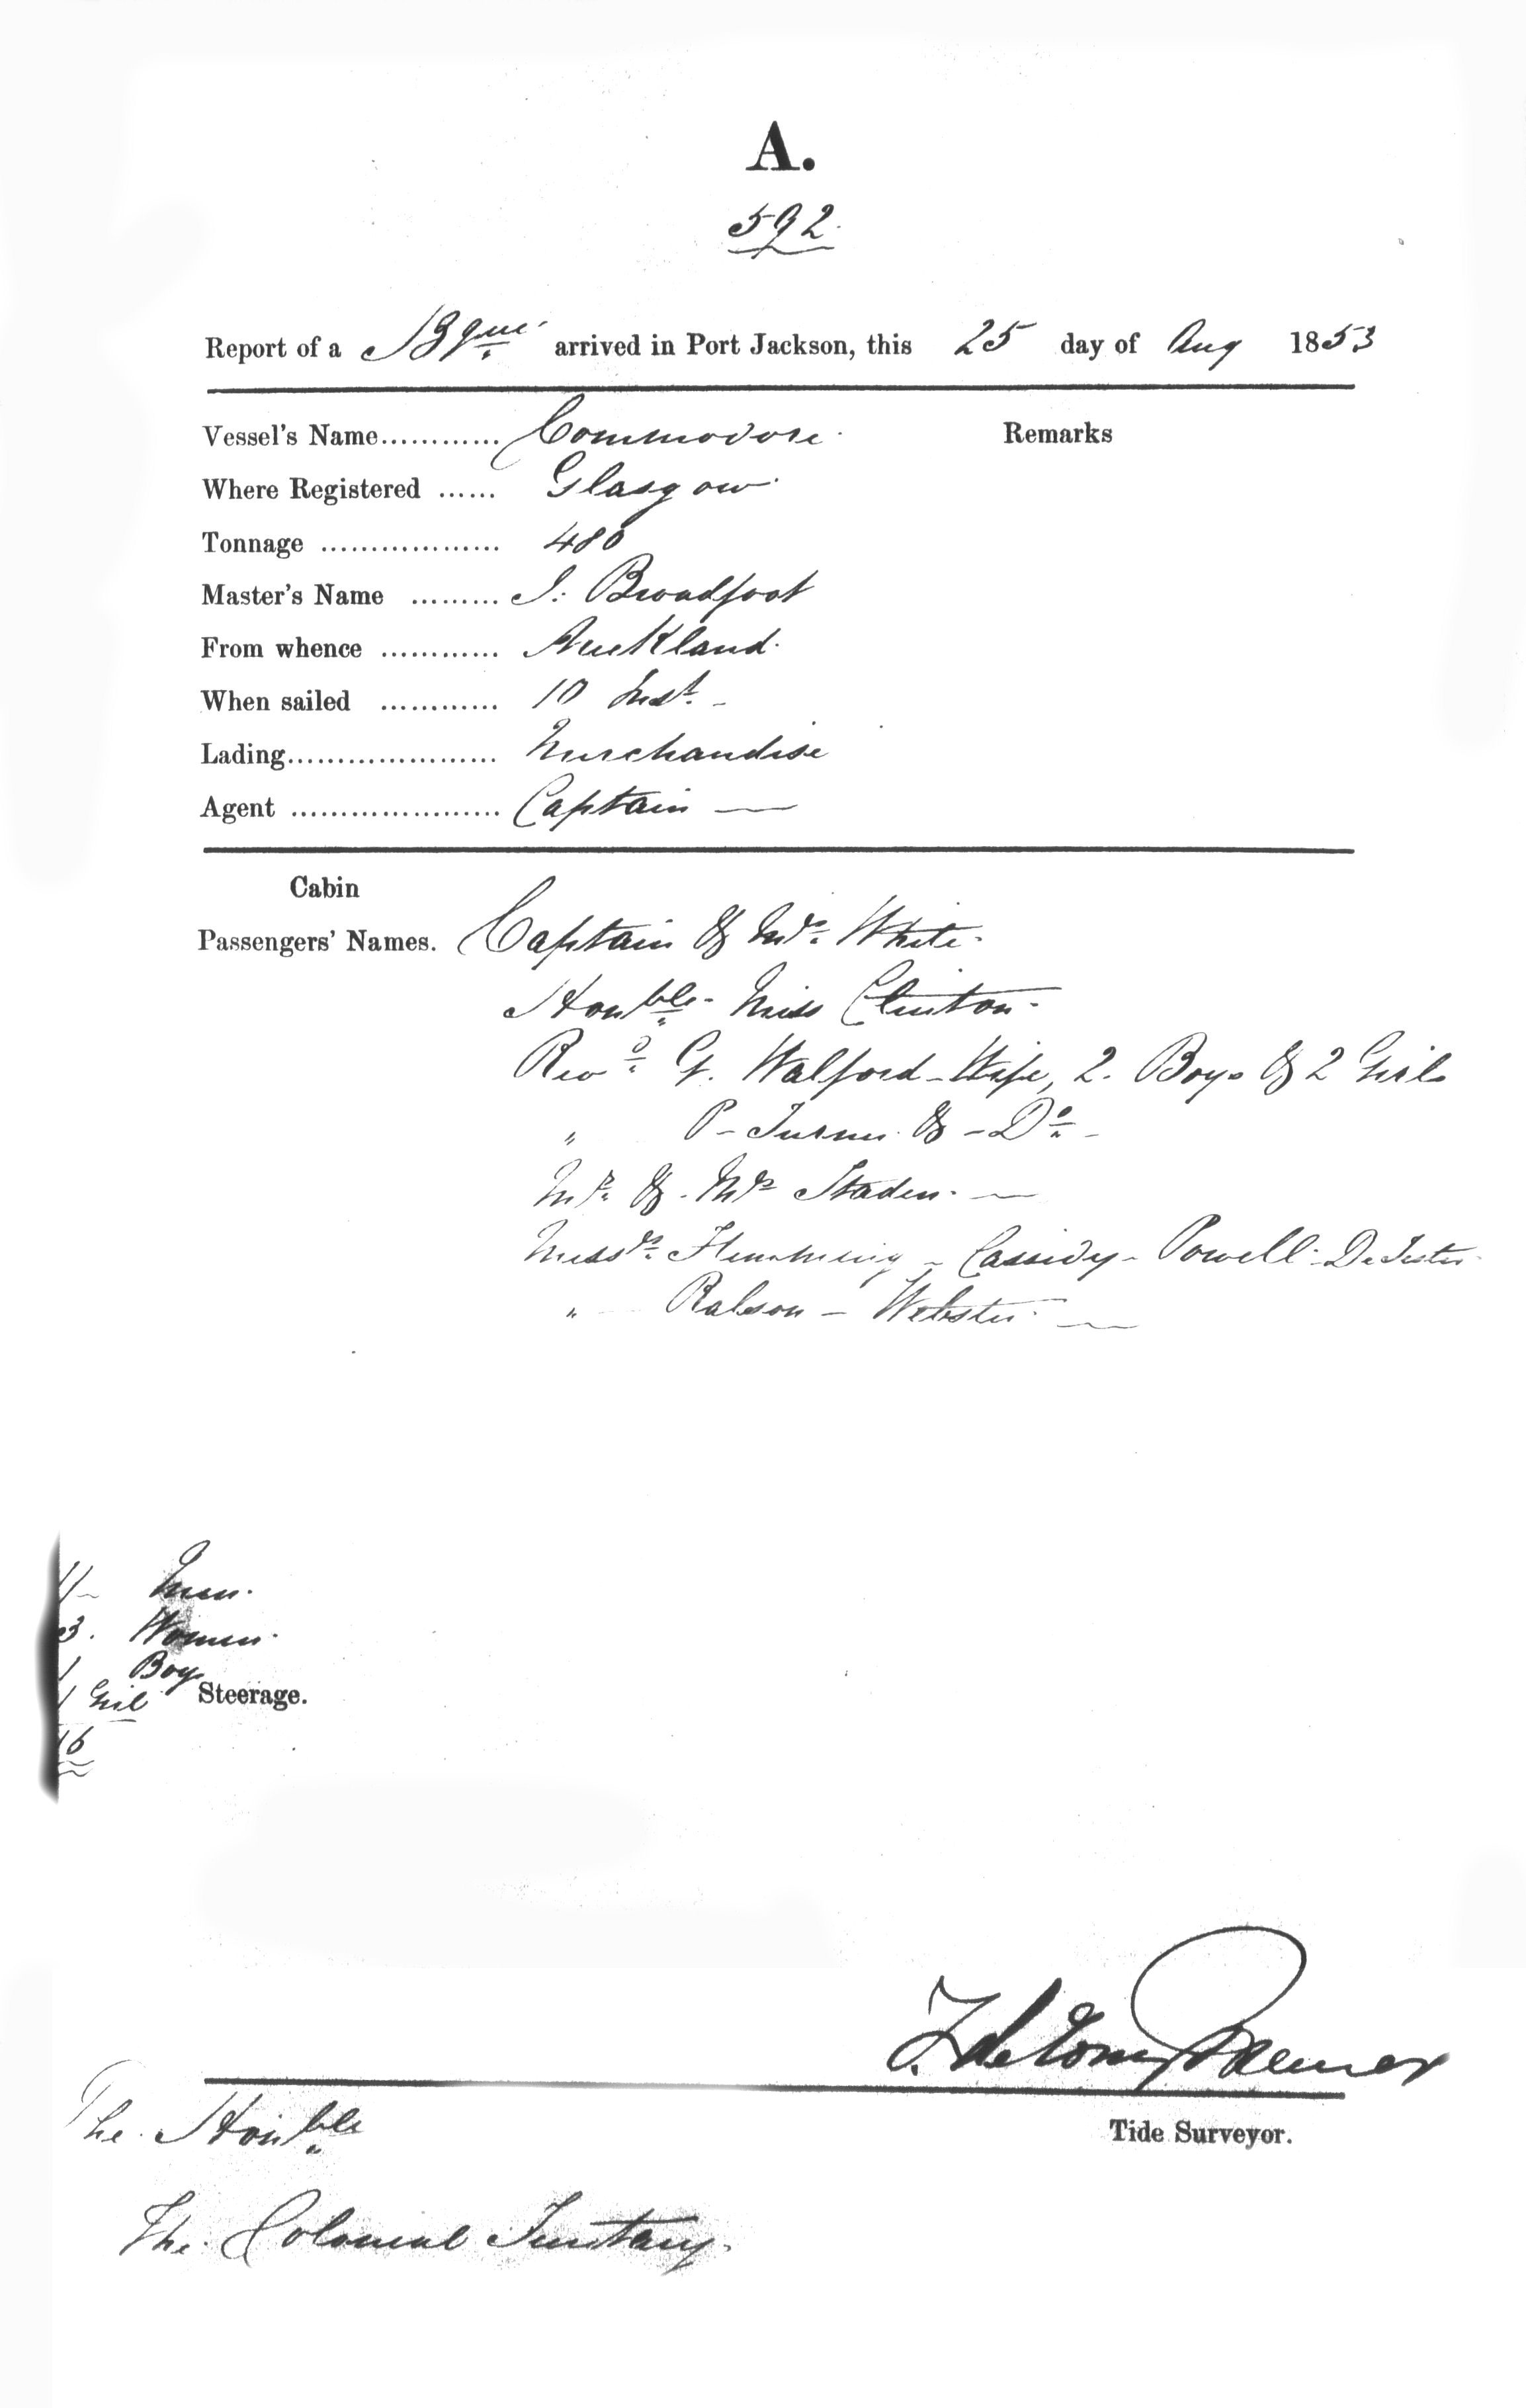 A.
592
Report of a Bque arrived in Port Jackson, this 25 day of Aug 1853
Vessel's Name............ Commodore Remarks
Where Registered ...... Glasgow
Tonnage .................. 480
Master's Name ......... J. Broadfoot
From whence ............ Auckland.
When sailed ............ 10 Inst.
Lading..................... Merchandise
Agent ..................... Captain —
Cabin
Passengers' Names. Captain & Mrs. White.
Honble. Miss Clinton.
Revd. G. Walford - Wife, 2. Boys & 2 Girls
" P - Turner & - Do -
Mr. & Mrs Staden. —
Messrs. Flemming - Cassidy - Powell -
" Rabson - Webster. —
11 - Men.
3. Women.
1 Boy
1 Girl Steerage.
16
Tide Surveyor.
The Honble
The Colonial Secretary.